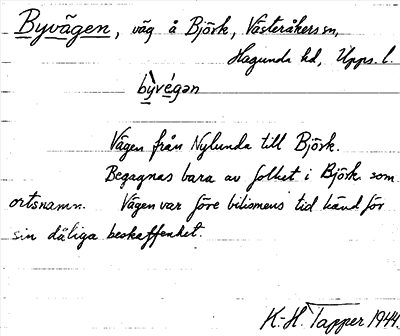 Byvägen, väg å Björk, Västeråkers sn,
Hagunda hd, Upps. l.
by̆vé̱gən
Vägen från Nylunda till Björk.
Begagnas bara av folket i Björk som
ortsnamn. Vägen var före bilismens tid känd för
sin dåliga beskaffenhet.
K.-H. Tapper 1944.